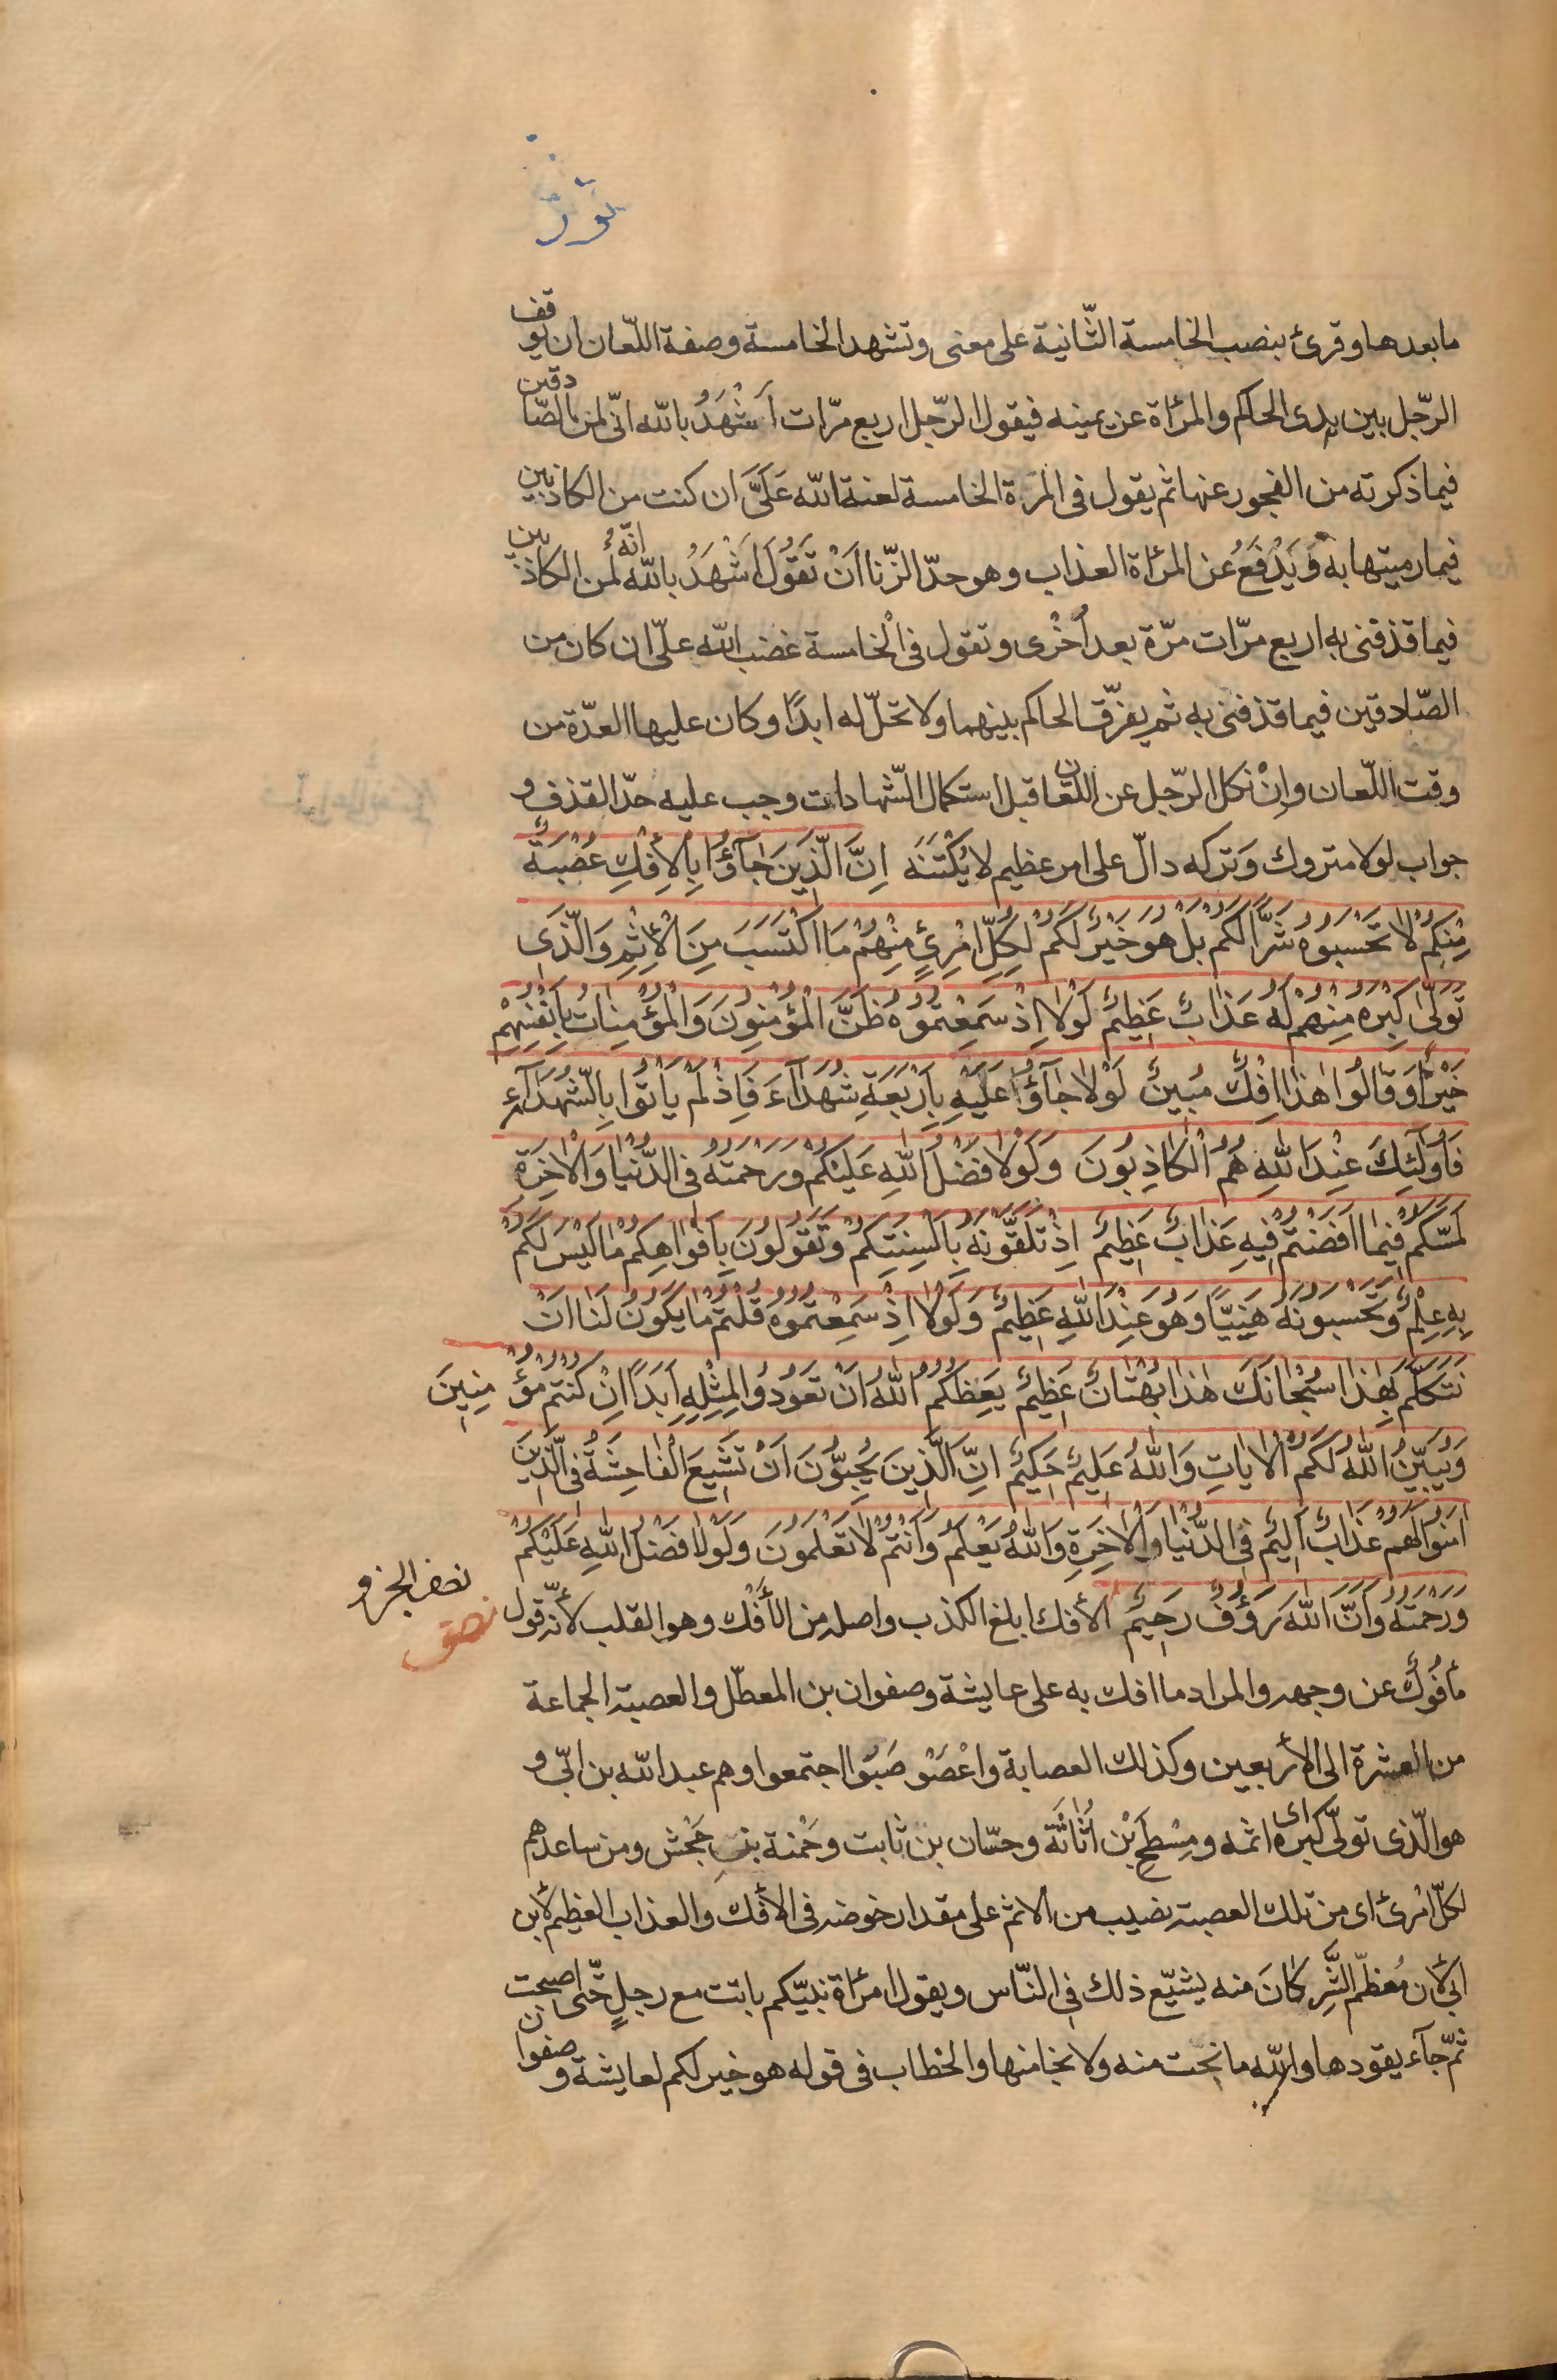 نور
ما بعدها وقرئ بنصب الخامسة الثّانية على معنى وتشهد الخامسة وصفة اللّعان ان يوقف
الرّجل بين يدى الحاكم والمرٔاة عن يمينه فيقول الرّجل اربع مرّات اَشْهَدُ بالله انّى لمن الصّادقين
فيما ذكرته من الفجور عنها ثم يقول فى المرّة الخامسة لعنة الله عَلَىَّ ان كنت من الكاذبين
فيما رميتها به وَيَدْفَعُ عن المرٔاة العذاب وهو حدّ الزّنا اَنْ تَقُولَ اَشْهَدُ بالله انّهُ لمن الكاذبين
فيما قذفنى به اربع مرّات مرّة بعد اُخْرى وتقول فى الْخامسة غضب الله علىّ ان كان من
الصّادقين فيما قذفنى به ثم يفرّق الحاكم بينهما ولا تحلّ له ابدًا وكان عليها العدّة من
وقت اللّعان وانْ نكل الرّجل عن اللّعان قبل استكمال الشّهادات وجب عليه حدّ القذف و
جواب لولا متروك وَتركه دالّ على امر عظيم لا يُكْتَنَه اِنَّ الَّذِينَ جٰآؤُا بِالْاِفْكِ عُصْبَةٌ
مِنْكُمْ لاٰ تَحْسَبُوهُ شَرًّا لَكُمْ بَلْ هُوَ خَيْرٌ لَكُمْ لِكُلِّ امْرِئٍ مِنْهُمْ مَا اكْتَسَبَ مِنَ الْاِثْمِ وَالَّذِى
تَوَلّٰى كِبْرَهُ مِنْهُمْ لَهُ عَذٰابٌ عَظِيمٌ لَوْلاٰ اِذْ سَمِعْتُمُوهُ ظَنَّ الْمُؤْمِنُونَ وَالْمُؤْمِنٰاتُ بِاَنْفُسِهِمْ
خَيْرًا وَقٰالُوا هٰذٰا اِفْكٌ مُبِينٌ لَوْلاٰ جٰآؤُا عَلَيْهِ بِاَرْبَعَةِ شُهَدٰآءَ فَاِذْ لَمْ يَاْتُوا بِالشُّهَدٰآءِ
فَاُولٰئِكَ عِنْدَ اللّٰهِ هُمُ الْكٰاذِبُونَ وَلَوْلاٰ فَضْلُ اللّٰهِ عَلَيْكُمْ وَرَحْمَتُهُ فِى الدُّنْيٰا وَالْاٰخِرَةِ
لَمَسَّكُمْ فِيمٰا اَفَضْتُمْ فِيهِ عَذٰابٌ عَظِيمٌ اِذْ تَلَقَّوْنَهُ بِاَلْسِنَتِكُمْ وَتَقُولُونَ بِاَفْوٰاهِكُمْ مٰا لَيْسَ لَكُمْ
بِهِ عِلْمٌ وَتَحْسَبُونَهُ هَيِّنًا وَهُوَ عِنْدَ اللّٰهِ عَظِيمٌ وَلَوْلاٰ اِذْ سَمِعْتُمُوهُ قُلْتُمْ مٰا يَكُونُ لَنٰا اَنْ
نَتَكَلَّمَ بِهٰذٰا سُبْحٰانَكَ هٰذٰا بُهْتٰانٌ عَظِيمٌ يَعِظُكُمُ اللّٰهُ اَنْ تَعُودُوا لِمِثْلِهِ اَبَدًا اِنْ كُنْتُمْ مُؤْمِنِينَ
وَيُبَيِّنُ اللّٰهُ لَكُمُ الْاٰيٰاتِ وَاللّٰهُ عَلِيمٌ حَكِيمٌ اِنَّ الَّذِينَ يُحِبُّونَ اَنْ تَشِيعَ الْفٰاحِشَةُ فِى الَّذِينَ
اٰمَنُوا لَهُمْ عَذٰابٌ اَلِيمٌ فِى الدُّنْيٰا وَالْاٰخِرَةِ وَاللّٰهُ يَعْلَمُ وَاَنْتُمْ لاٰ تَعْلَمُونَ وَلَوْلاٰ فَضْلُ اللّٰهِ عَلَيْكُمْ
وَرَحْمَتُهُ وَاَنَّ اللّٰهَ رَؤُفٌ رَحِيمٌ الأفك ابلغ الكذب واصله من الأَفْك وهو القلب لأنّه قول
نصف الجزو
مأفُوكٌ عن وجهه والمراد ما افك به على عايشة وصفوان بن المعطّل والعصبة الجماعة
من العشرة الى الأربعين وكذلك العصابة واعْصَوْصَبُوا اجتمعوا وهم عبد الله بن ابىّ و
هو الّذى تولّى كبره اى اثمه ومِسْطَح بْن اُثٰاثَة وحسّان بن ثابت وحَمْنة بنت جَحْش ومن ساعدهم
لكلّ امْرئ اى من تلك العصبة نصيب من الاثم على مقدار خوضه فى الأفك والعذاب العظيم لأبن
ابى لأن مُعْظَم الشَّرِ كٰانَ منه يشيّع ذلك فى النّاس ويقول امرٔاة نبيّكم باتت مع رجلٍ حتّى اصبحت
ثمّ جآء يقودها والله ما نجت منه ولا نجا منها والخطاب فى قوله هو خير لكم لعايشة وصفوان